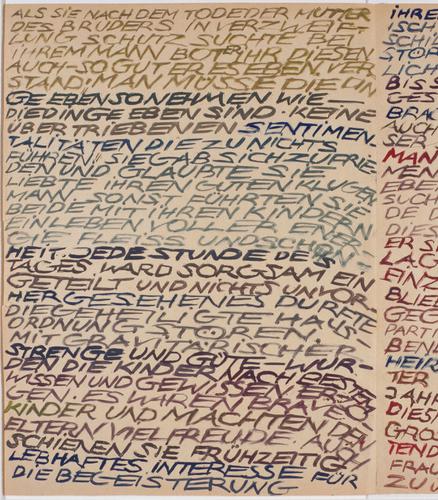 ALS SIE NACH DEM TOD DER MUTTER
DES BRUDERS IN VERZWEIFE-
LUNG SCHUTZ SUCHTE BEI
IHREM MANN BOT ER IHR DIESEN
AUCH SO GUT ER ES EBEN VER-
STAND: MAN MÜSSE DIE DIN-
GE EBEN SO NEHMEN WIE
DIE DINGE EBEN SIND - KEINE
ÜBERTRIEBENEN SENTIMEN-
TALITÄTEN DIE ZU NICHTS
FÜHREN. SIE GAB SICH ZUFRIE-
DEN UND GLAUBTE SIE
LIEBTE IHREN GUTEN KLUGEN
MANN. SO FÜHRTEN SIE
BEIDE MIT IHREN KINDERN
EIN LEBEN VOLLER ENER-
GIE FLEISS UND SCHÖN-
HEIT. JEDE STUNDE DES
TAGES WARD SORGSAM EIN
GETEILT UND NICHTS UNVOR
HERGESEHENES DURFTE
DIE GEHEILIGTE HAUS-
ORDNUNG STÖREN.
MIT GRAVITÄRISCHER
STRENGE UND GÜTE WUR-
DEN DIE KINDER NACH BESTEM
WISSEN UND GEWISSEN ERZO-
GEN. ES WAREN BRAVE
KINDER UND MACHTEN DEN
ELTERN VIEL FREUDE. AUCH
SCHIENEN SIE FRÜHZEITIG
LEBHAFTES INTERESSE FÜR
DIE BEGEISTERUNG
IHRE
ISCH
SCHI
STOF
LICH
BISS
GES
BRAU
AUCH
SER
MAN
MEN
EBE
SUCH
DE D
DIES
ER S
LÄCH
EINZ
BLIE
GEG
PART
BEN
HEIR
TER
JAHR
DIEST
GROS
TEND
FRAU
ZU U